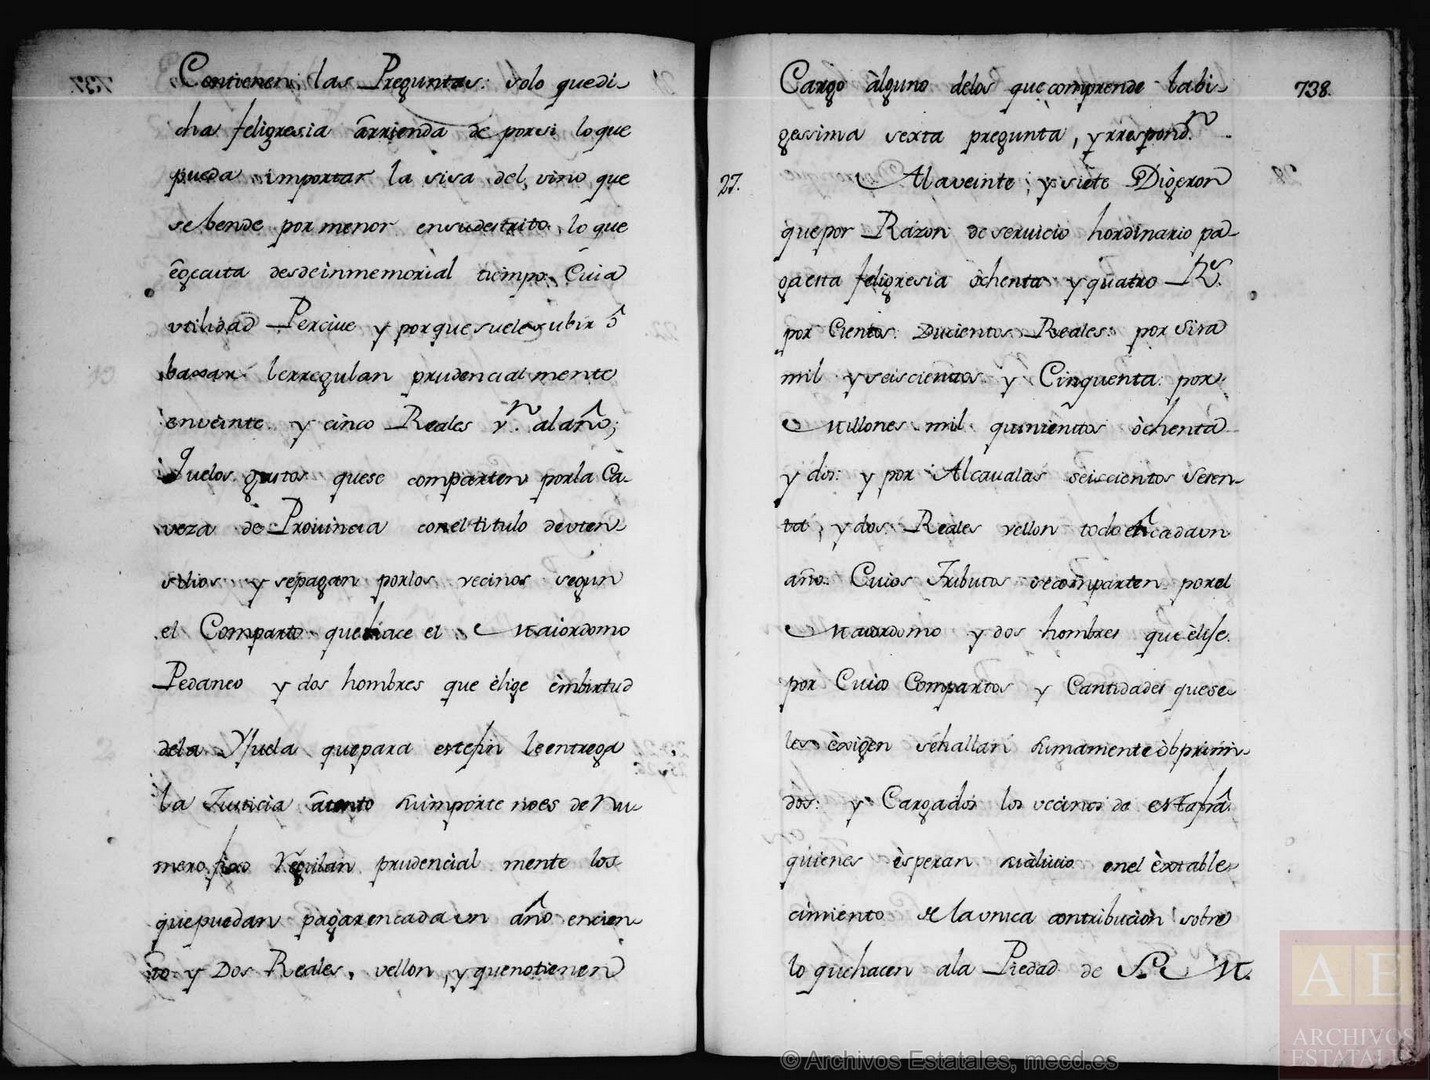 Contienen las Preguntas: solo quedi-
cha feligresia ârrienda de porsi loque
pueda importar la sisa del vino que
sebende por menor ensudestrito, lo que
êgecuta desdeinmemorial tiempo: Cuia
vtilidad Perciue y porquesuele subir ô
baxar lerregulan prudencialmente
enveinte y cinco Reales v.n alaño;
Quelos gastos quese comparten porla Ca-
veza de Prouincia conel titulo devten-
silios y sepagan porlos vecinos segun
el Comparto quehace el Maiordomo
Pedaneo y dos hombres que èlige ènbirtud
dela Yjuela quepara estefin leentrega
la Justicia âtento suimporte noes de Nu-
mero fixo Regulan prudencial mente los
quepuedan pagarencadaun año encien-
to y Dos Reales, vellon, yquenotienen
Cargo àlguno delos quecomprende labi-
gessima sexta pregunta, yrrespond.n
27. Alaveinte y siete Digeron
quepor Razon deservicio hordinario pa-
gaesta feligresia òchenta yquatro R.s
por Cientos: Ducientos Reales: por Sisa
mil yseiscientos y Cinquenta: por
Millones mil quinientos òchenta
y dos: y por Alcaualas seiscientos seten-
ta, y dos: Reales vellon todo en cadaun
año: Cuios Tributos secomparten porel
Maiordomo y dos hombres que èlije
por Cuio Compartos y Cantidades quese
les èxigen sehallan sumamente òbprimi-
dos: y Cargados los vecinos de esta fra
quienes èsperan sualiuio enel èstable-
cimiento de launica contribucion sobre
lo quehacen ala Piedad de S. R. M.
738.
737.
© Archivos Estatales, mecd.es
AE
ARCHIVOS
ESTATALES